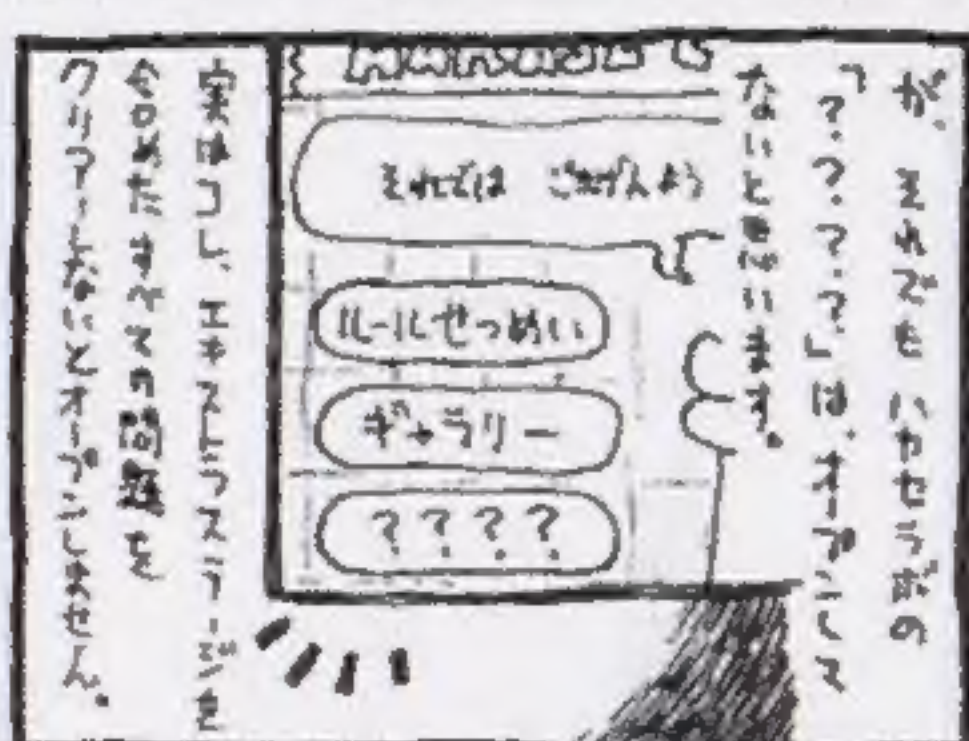 が、それでもハカセラボの
「？？？？」は、オープンして
ないと思います。
それでは ごきげんよう
ルールせつめい
ギャラリー
？？？？
実はコレ、エキストラステージを
含めたすべての問題を
クリアーしないとオープンしません。